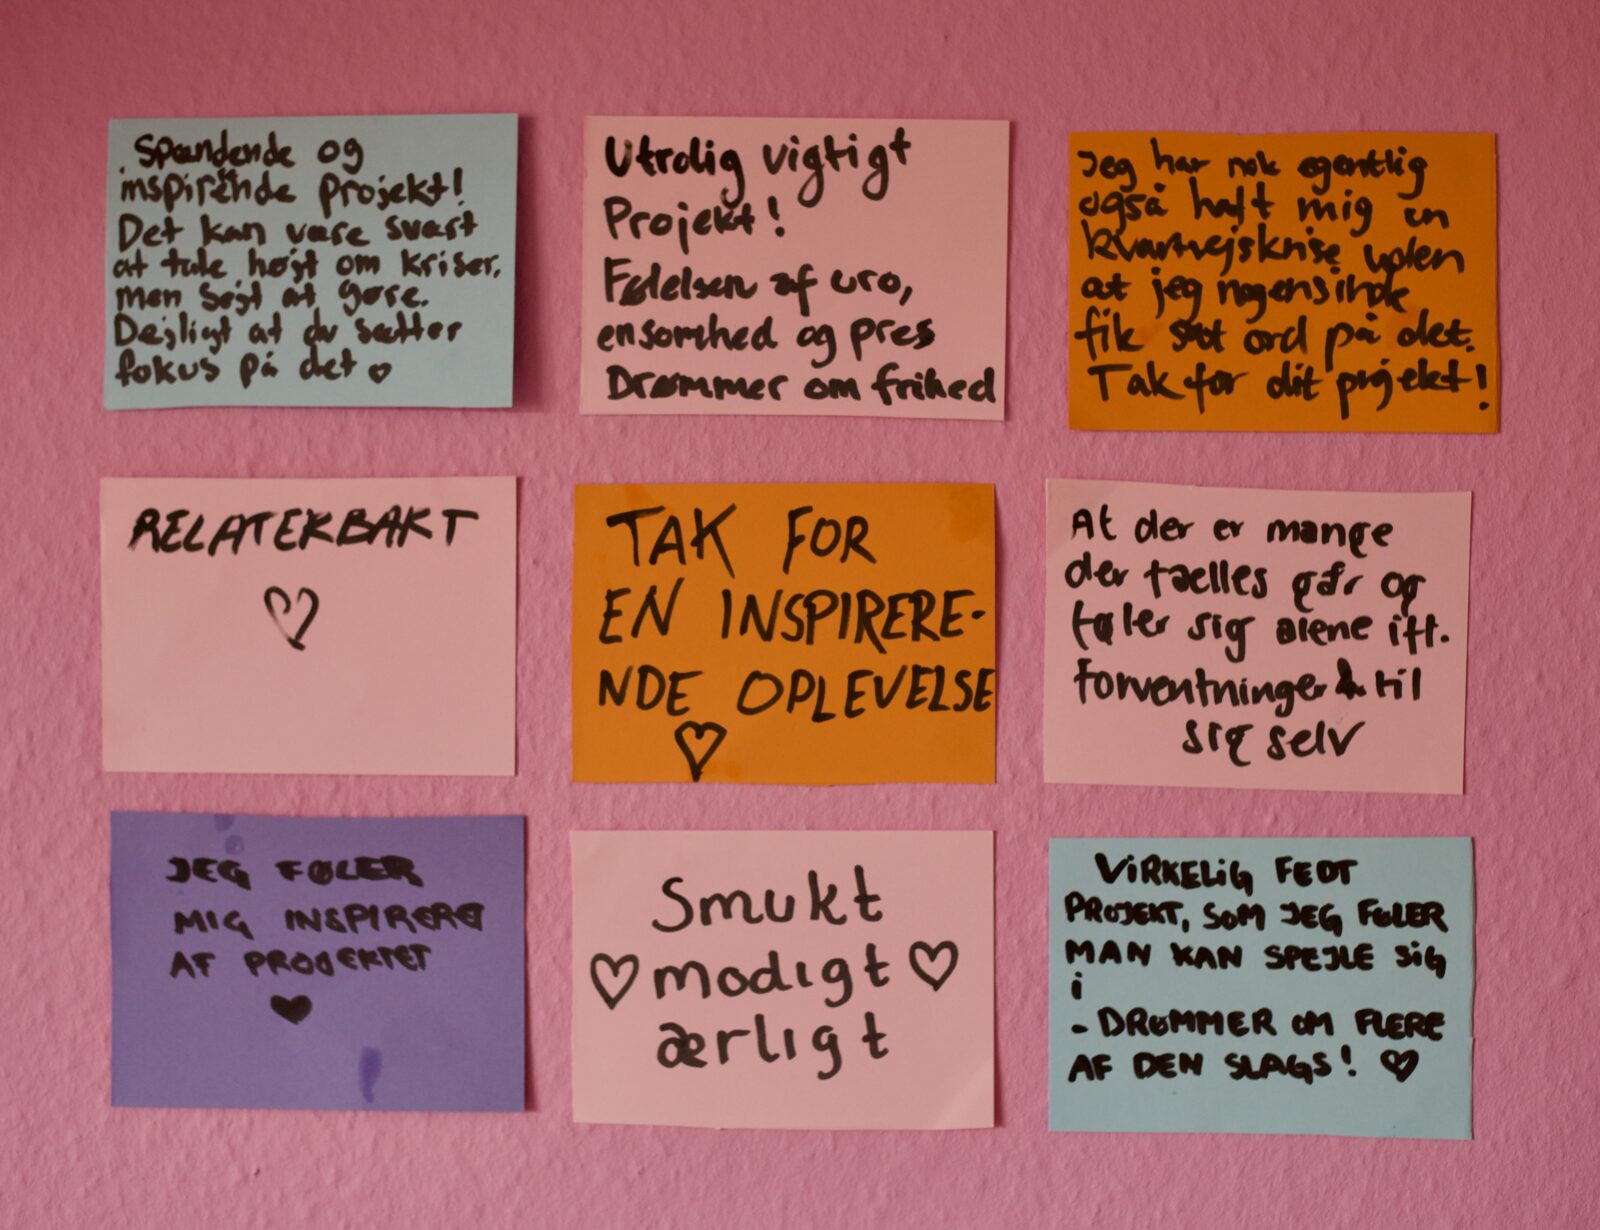 Spændende og
inspirende projekt!
Det kan være svært
at tale højt om kriser,
men sejt at gøre.
Dejligt at du sætter
fokus på det ♡
Utrolig vigtigt
Projekt!
Følelsen af uro,
ensomhed og pres
Drømmer om frihed
Jeg har nok egentlig
også haft mig en
kvartvejskrise uden
at jeg nogensinde
fik sat ord på det.
Tak for dit projekt!
RELATERBART
♡
TAK FOR
EN INSPIRERE-
NDE OPLEVELSE
♡
At der er mange
der fælles går og
føler sig alene ift.
forventninger til
sig selv
JEG FØLER
MIG INSPIRERE
AF PROJEKTET
♥
Smukt
♡ modigt ♡
ærligt
VIRKELIG FEDT
PROJEKT, SOM JEG FØLER
MAN KAN SPEJLE SIG
i
- DRØMMER OM FLERE
AF DEN SLAGS! ♡